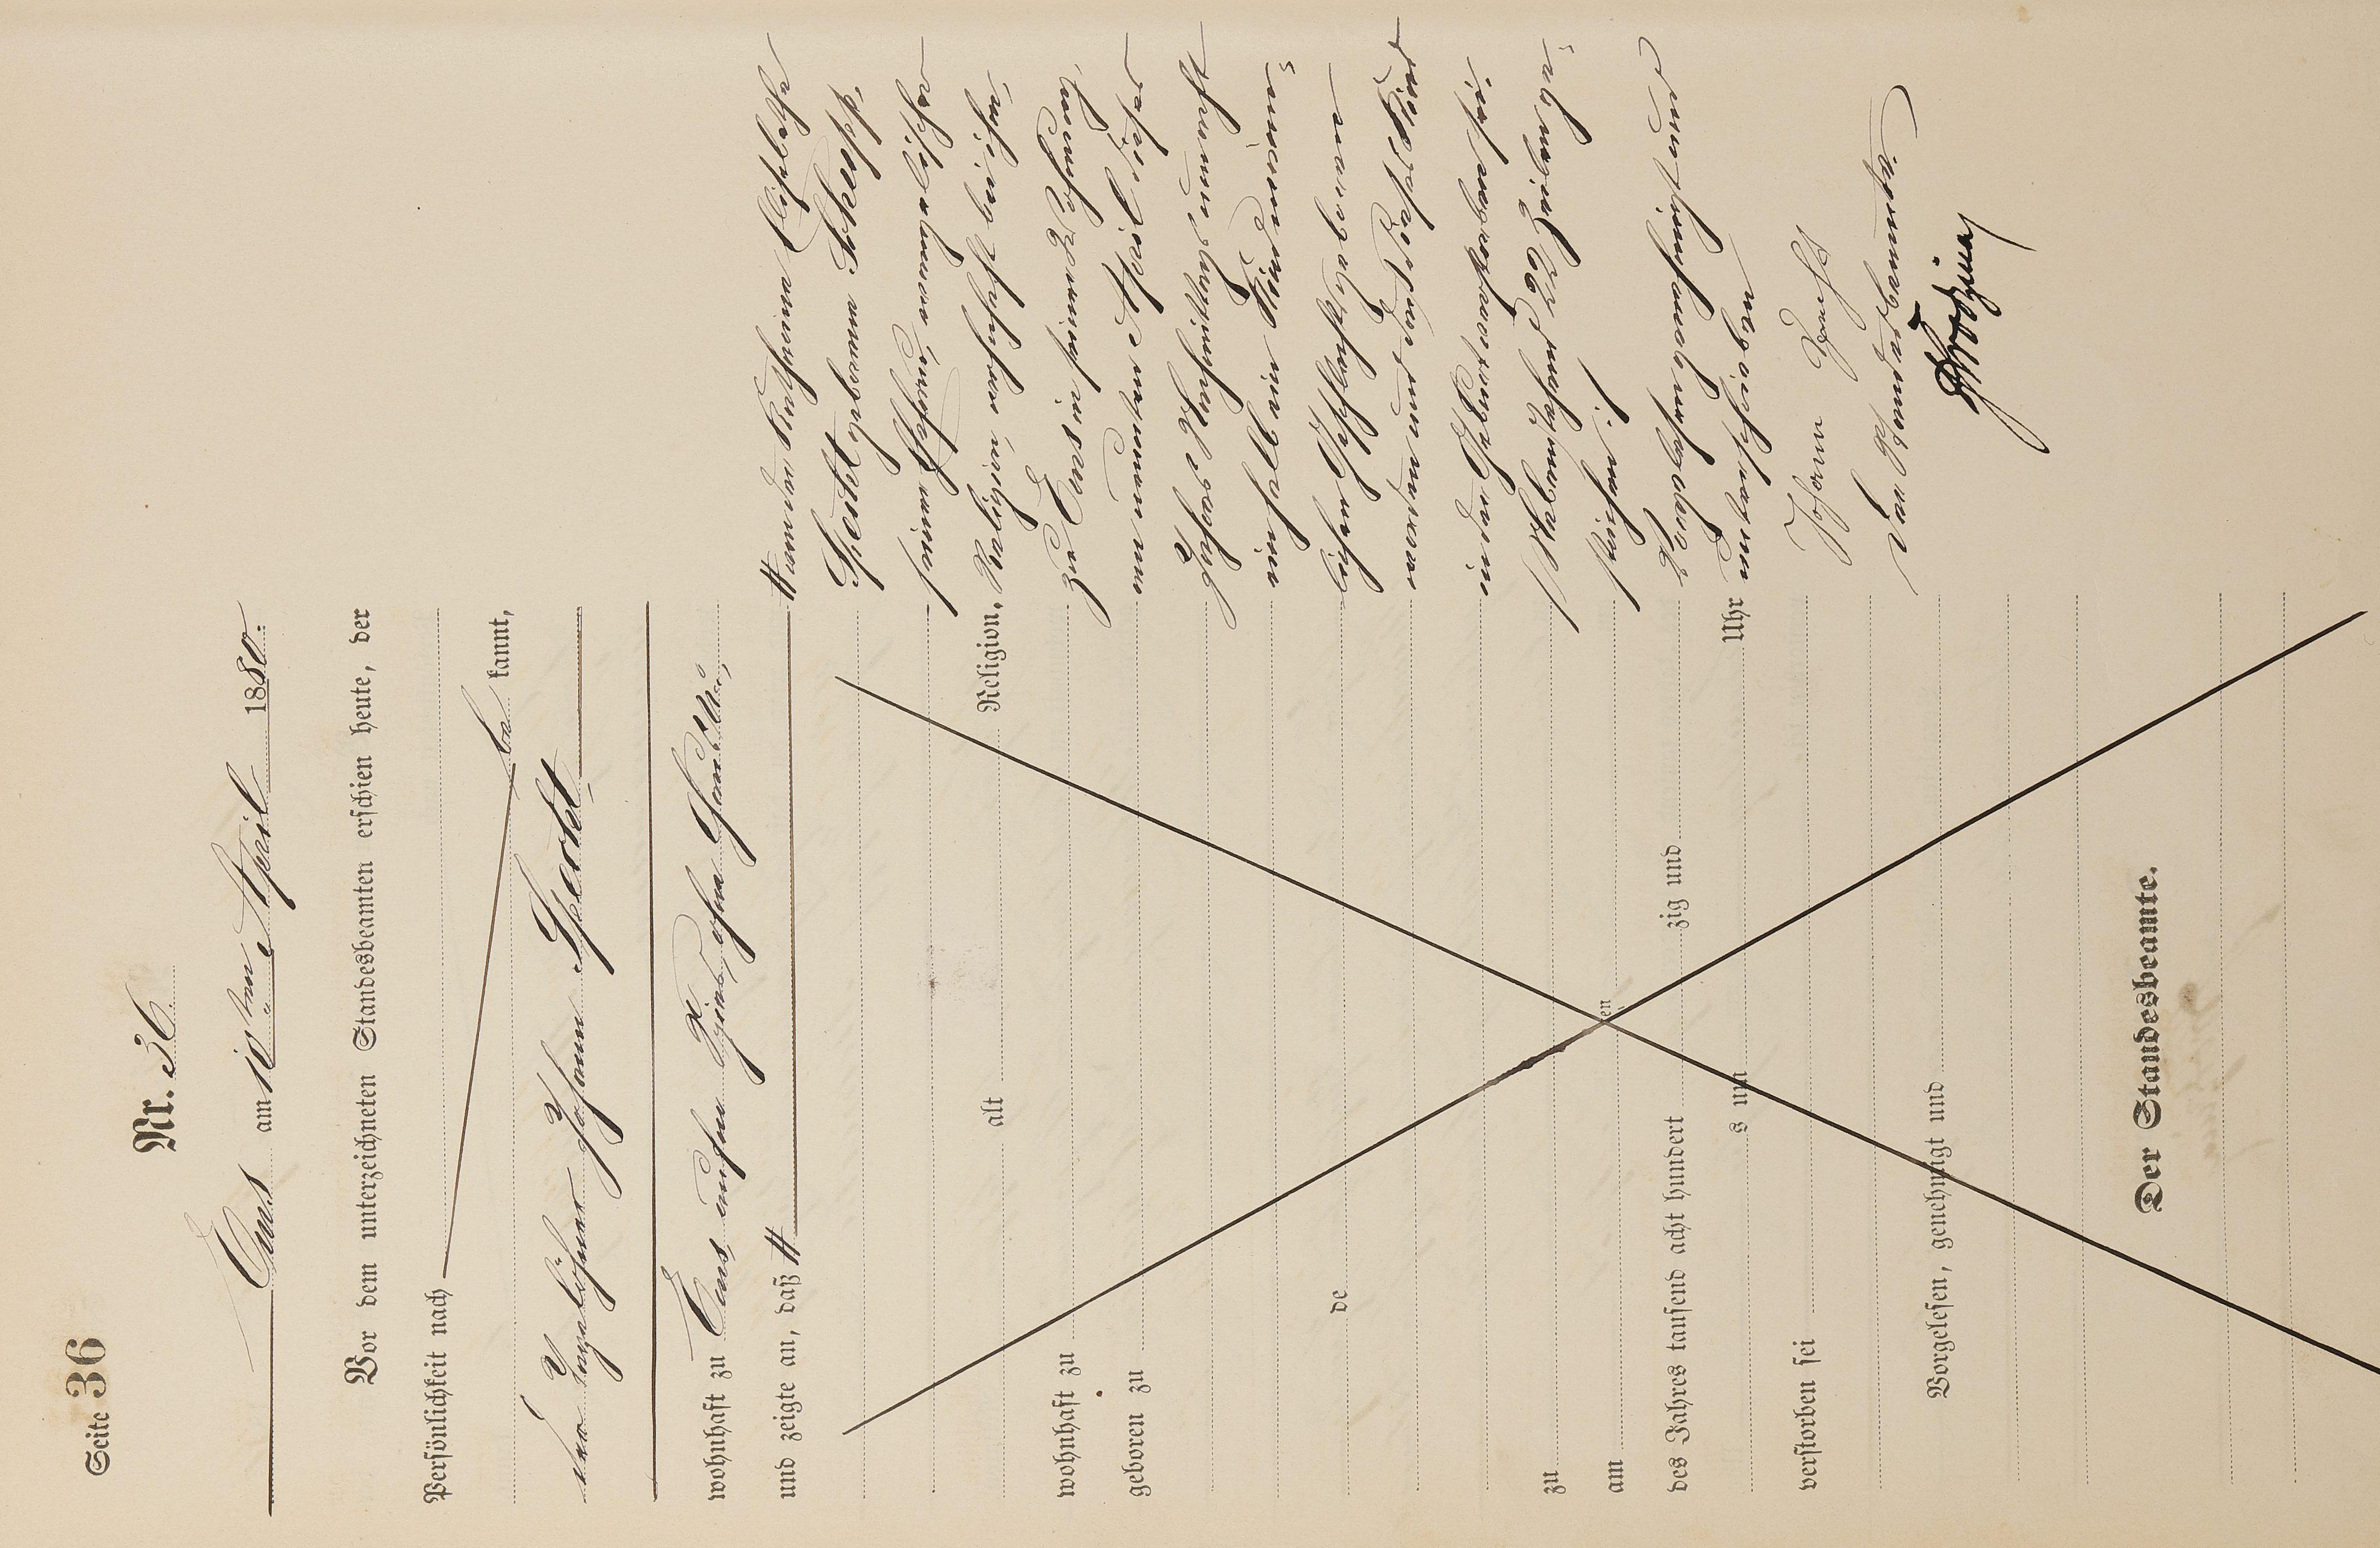 Seite 36
Nr. 36.
Ems am 10ten April 1880.
Vor dem unterzeichneten Standesbeamten erschien heute, der
Persönlichkeit nach
be kannt,
der Tagelöhner Johann Specht
wohnhaft zu Ems,
und zeigte an, daß #
alt Religion,
wohnhaft zu
geboren zu
de
zu
am ten
des Jahres tausend acht hundert zig und
s um Uhr
verstorben sei
Vorgelesen, genehmigt und
Der Standesbeamte.
# von der Katharina Elisabetha
Specht geborenen Schupp,
seiner Ehefrau, evangelischer
Religion, wohnhaft bei ihm,
zu Ems in seiner Wohnung,
am neunten April dieses
Jahres Nachmittags um acht
ein halb ein Kind männ-
lichen Geschlechts geboren
worden und daß dieses Kind
in der Geburt verstorben sei.
Nebenstehend 22 Zeilen ge-
strichen!
Vorgelesen, genehmigt und
unterschrieben
Johann Specht
Der Standesbeamte.